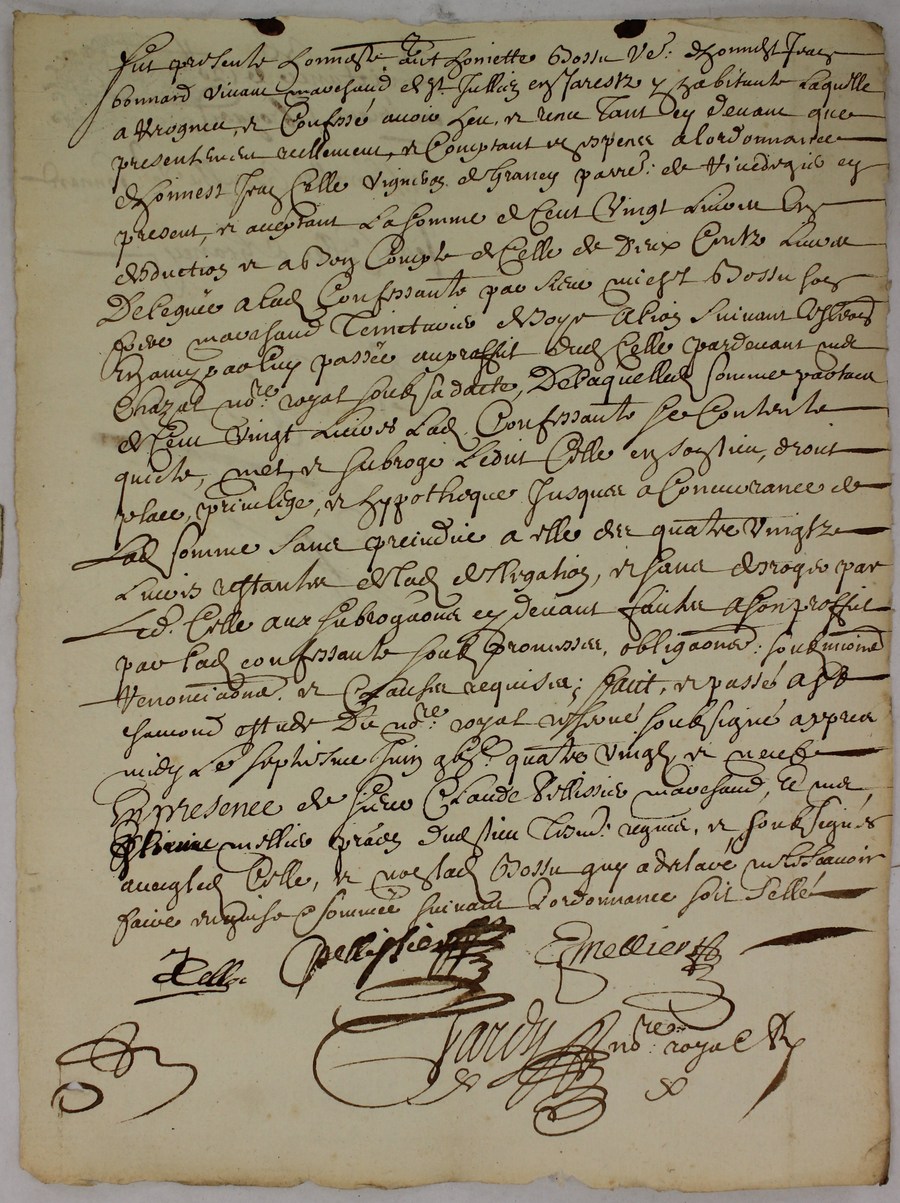 Fut presente honneste Anthoniette Bossu Ve: d'honnest Jean
bonnard vivant marchand de st Jullien en Jarestz y habitante Laquelle
a Recogneu, et Confessé avoir heu, et receu tant cy devant que
presentement reellement, et Comptant en espences a l'ordonnance
d'honnest Jean Celle vigneron de Graney parre: de
present, et acceptant La somme de Cent Vingt Livres En
desduction et a Bon Compte de Celle de Deux Centz Livres
Deleguée a lad Confessante par sieur michel Bossu son
frere marchand
passée au proffit dud Celle pardevant me
Chazal nore royal soubz sa datte, De laquelle somme partant
de Cent Vingt Livres Lad Confessante se Contente
quicte, met, et subroge Ledit Celle en son lieu, droit
place, privilege, et hyppotheque Jusques a Concurance de
Lad somme sans preiudice a elle des quatre vingtz
Livres restantes de lad delegation, et sans deroger par
Led. Celle aux subrogaons cy devant faites a son proffit
par lad confessante soubz promesses, obligaons: soubmions
Renonciaons. et Clauses requises; fait, et passé a St
chamond estude Du nore royal reservé soubsigné appres
midy Le septiesme Juin gbic. quatre vingtz et neuf
En presence de sieur Claude Pellissier marchand, Et me
Estienne mellier praen dud lieu tesmt. requis, et soubsignés
avec led Celle, et non lad Bossu quy a declaré ne Scavoir
faire enquise & sommée suivant L'ordonnance soit sellé
JCelle Pellissier EMellier
Tardy nore: royal R